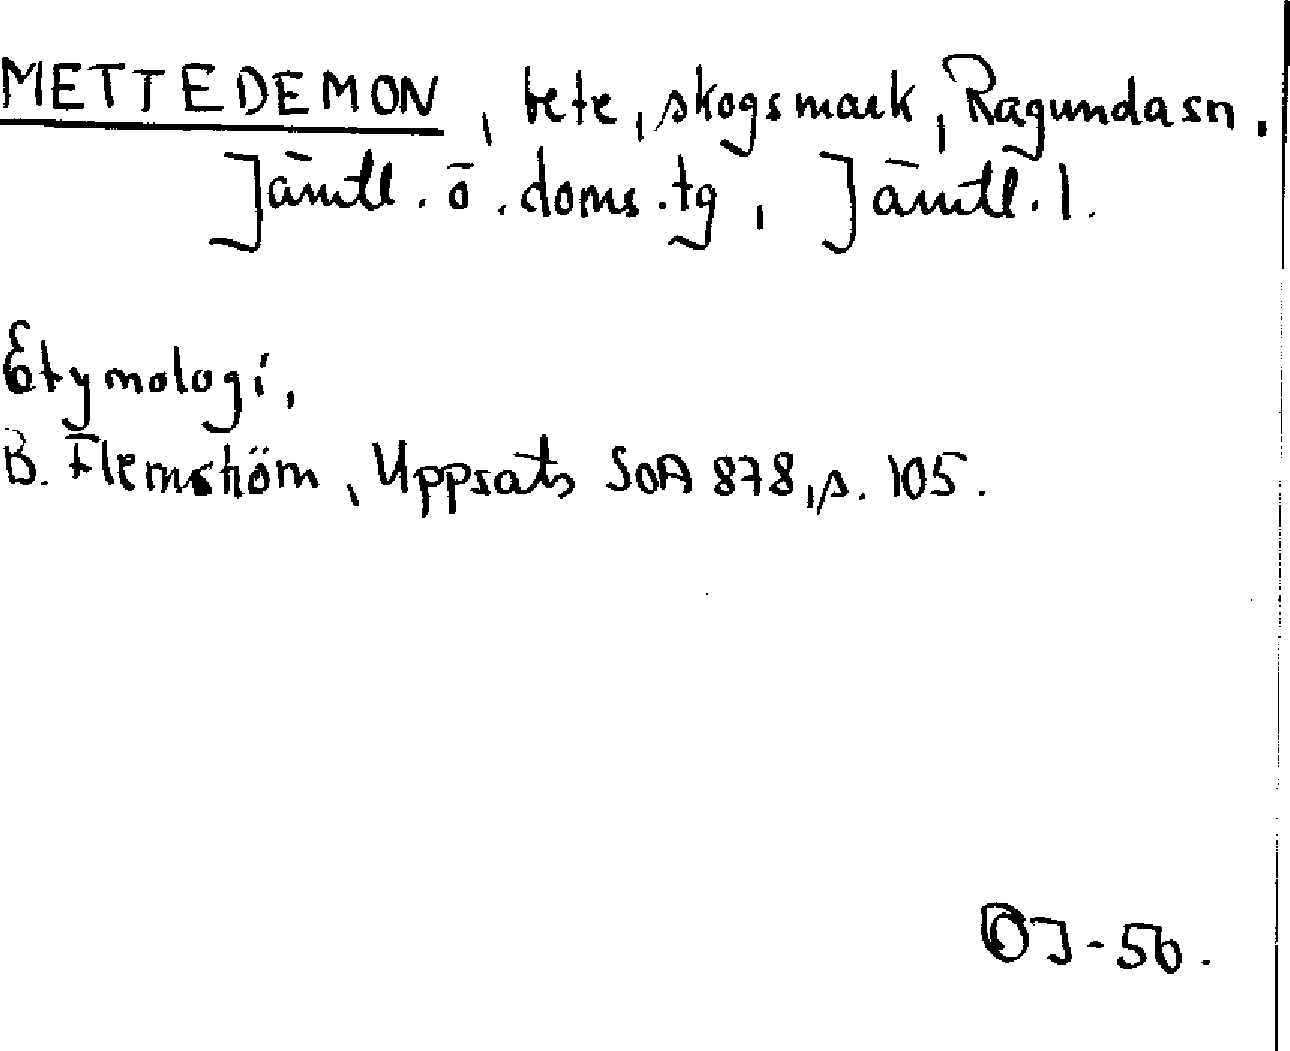 METTEDEMON, bete, skogsmark, Ragunda sn.
Jämtl. ö. doms. tg, Jämtl. l.
Etymologi,
B. Flemström, Uppsats SOA 878, s. 105.
OJ-50.